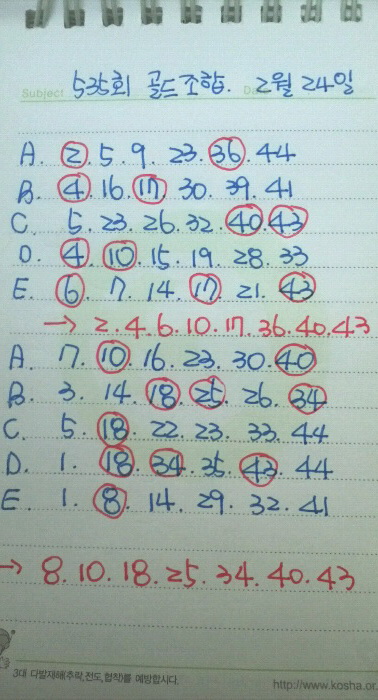 Subject 535회 골드조합. Date 2월 24일
A. 2. 5. 9. 23. 36. 44
B. 4. 16. 17. 30. 39. 41
C. 5. 23. 26. 32. 40. 43
D. 4. 10. 15. 19. 28. 33
E. 6. 7. 14. 17. 21. 43
→ 2. 4. 6. 10. 17. 36. 40. 43
A. 7. 10. 16. 23. 30. 40
B. 3. 14. 18. 25. 26. 34
C. 5. 18. 22. 23. 33. 44
D. 1. 18. 34. 35. 43. 44
E. 1. 8. 14. 29. 32. 41
→ 8. 10. 18. 25. 34. 40. 43
3대 다발재해(추락,전도,협착)를 예방합시다.
http://www.kosha.or